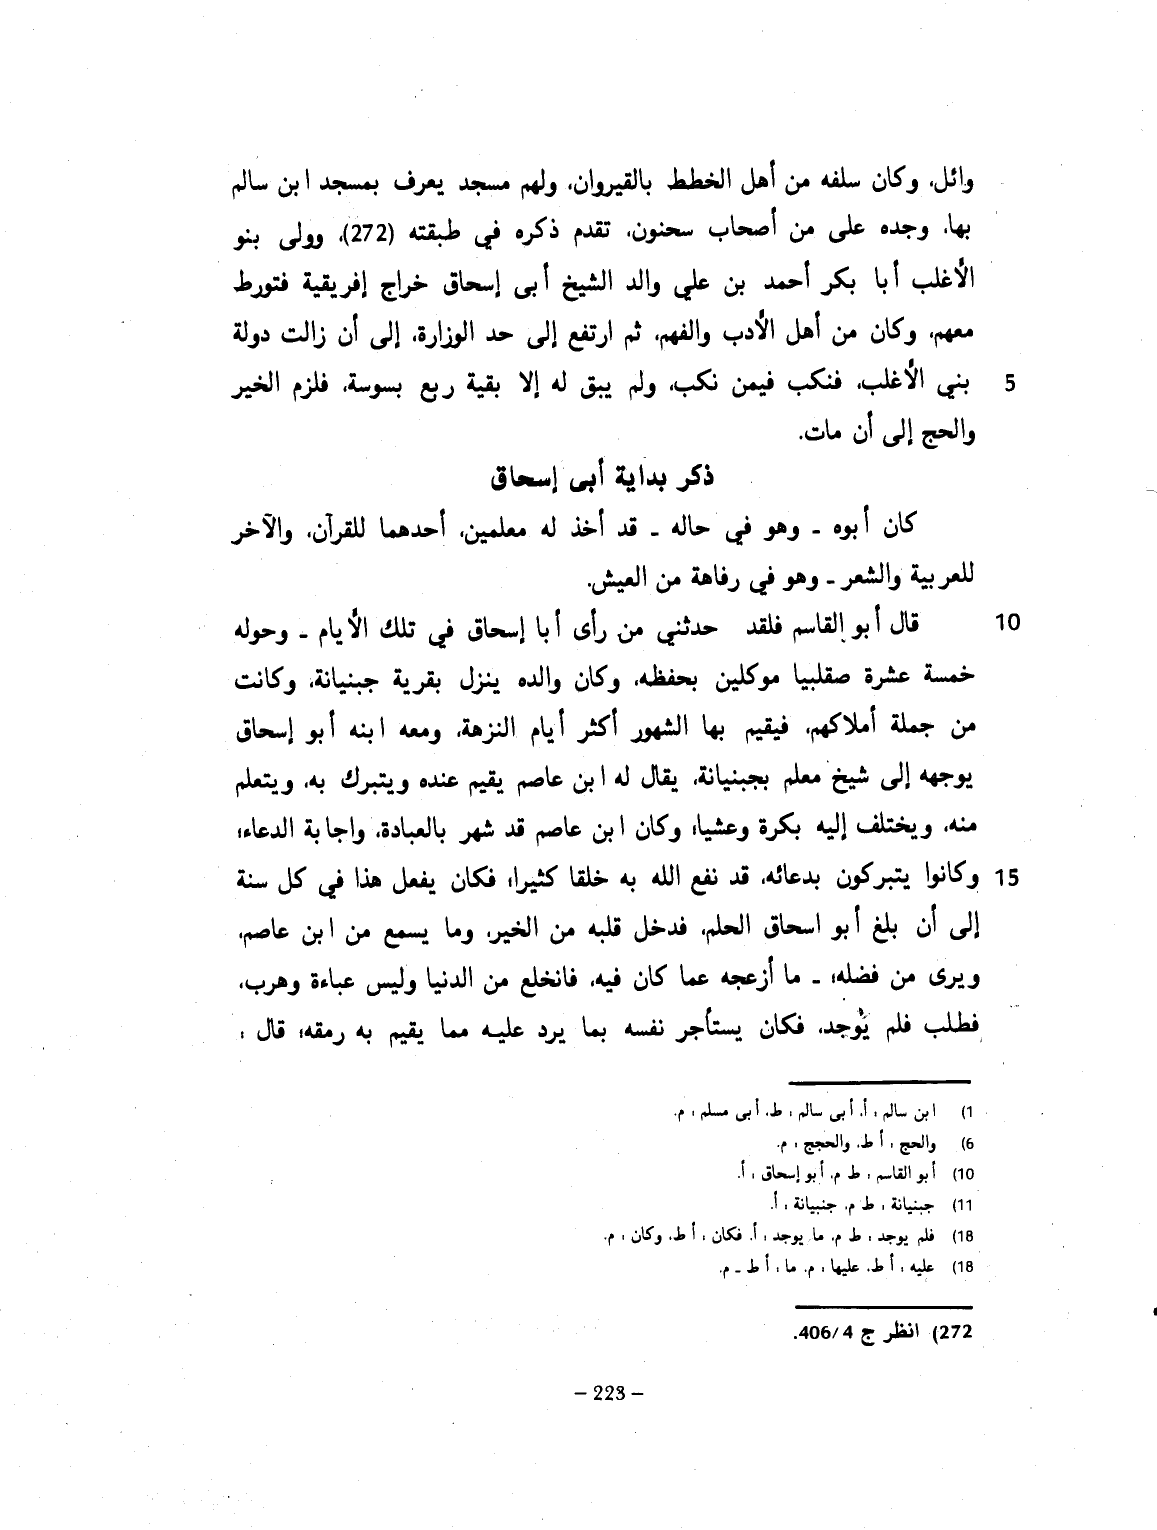 وائل، وكان سلفه من أهل الخطط بالقيروان، ولهم مسجد يعرف بمسجد ابن سالم
بها، وجده على من أصحاب سحنون، تقدم ذكره في طبقته (272)، وولى بنو
الأغلب أبا بكر أحمد بن علي والد الشيخ أبى إسحاق خراج إفريقية فتورط
معهم، وكان من أهل الأدب والفهم، ثم ارتفع إلى حد الوزارة، إلى أن زالت دولة
5 بني الأغلب، فنكب فيمن نكب، ولم يبق له إلا بقية ربع بسوسة، فلزم الخير
والحج إلى أن مات.
ذكر بداية أبى إسحاق
كان أبوه ـ وهو في حاله ـ قد أخذ له معلمين، أحدهما للقرآن، والآخر
للعربية والشعر ـ وهو في رفاهة من العيش.
10 قال أبو القاسم فلقد حدثني من رأى أبا إسحاق في تلك الأيام ـ وحوله
خمسة عشرة صقلبيا موكلين بحفظه، وكان والده ينزل بقرية جبنيانة، وكانت
من جملة أملاكهم، فيقيم بها الشهور أكثر أيام النزهة، ومعه ابنه أبو إسحاق
يوجهه إلى شيخ معلم بجبنيانة، يقال له ابن عاصم يقيم عنده ويتبرك به، ويتعلم
منه، ويختلف إليه بكرة وعشيا؛ وكان ابن عاصم قد شهر بالعبادة، واجابة الدعاء؛
15 وكانوا يتبركون بدعائه، قد نفع الله به خلقا كثيرا؛ فكان يفعل هذا في كل سنة
إلى أن بلغ أبو اسحاق الحلم، فدخل قلبه من الخير، وما يسمع من ابن عاصم،
ويرى من فضله؛ ـ ما أزعجه عما كان فيه، فانخلع من الدنيا وليس عباءة وهرب،
فطلب فلم يُوجد، فكان يستأجر نفسه بما يرد عليه مما يقيم به رمقه؛ قال :
1) ابن سالم : أ. أبى سالم : ط. أبى مسلم : م.
6) والحج : أ ط. والحجج : م.
10) أبو القاسم : ط م. أبو إسحاق : أ.
11) جبنيانة : ط م. جنبيانة : أ.
18) فلم يوجد : ط م. ما يوجد : أ. فكان : أ ط. وكان : م.
18) عليه : أ ط. عليها : م. ما : أ ط ـ م.
272) انظر ج 4/406.
– 223 –